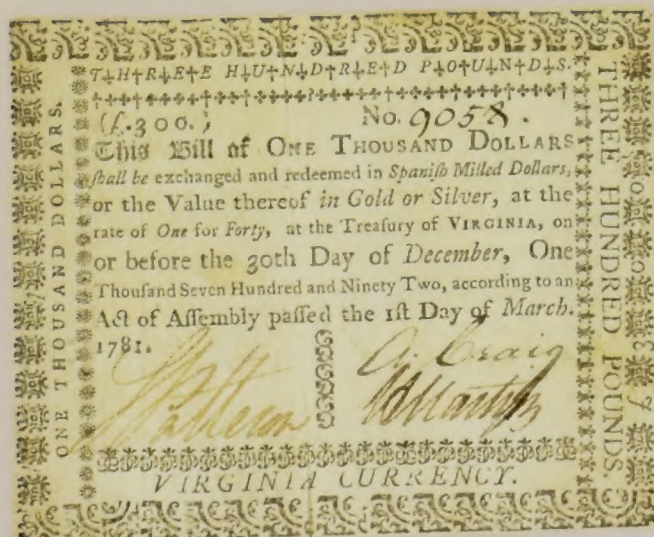 T‡H‡R‡E‡E H‡U‡N‡D‡R‡E‡D P‡O‡U‡N‡D‡S.
(£.300.) No. 9058.
This Bill of ONE THOUSAND DOLLARS
ſhall be exchanged and redeemed in Spaniſh Milled Dollars,
or the Value thereof in Gold or Silver, at the
rate of One for Forty, at the Treaſury of VIRGINIA, on
or before the 30th Day of December, One
Thouſand Seven Hundred and Ninety Two, according to an
Act of Aſſembly paſſed the 1ſt Day of March.
1781.
A. Craig
VIRGINIA CURRENCY.
ONE THOUSAND DOLLARS.
THREE HUNDRED POUNDS.